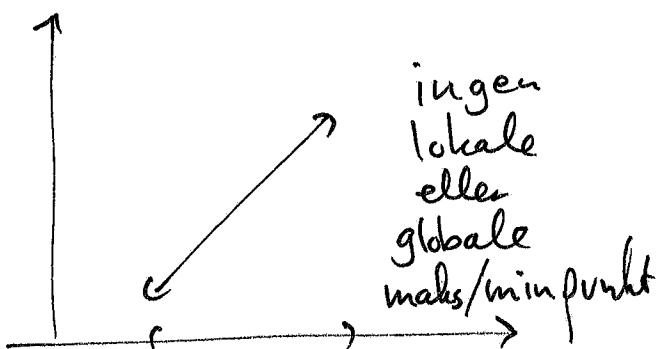 ingen
lokale
eller
globale
maks/minpunkt